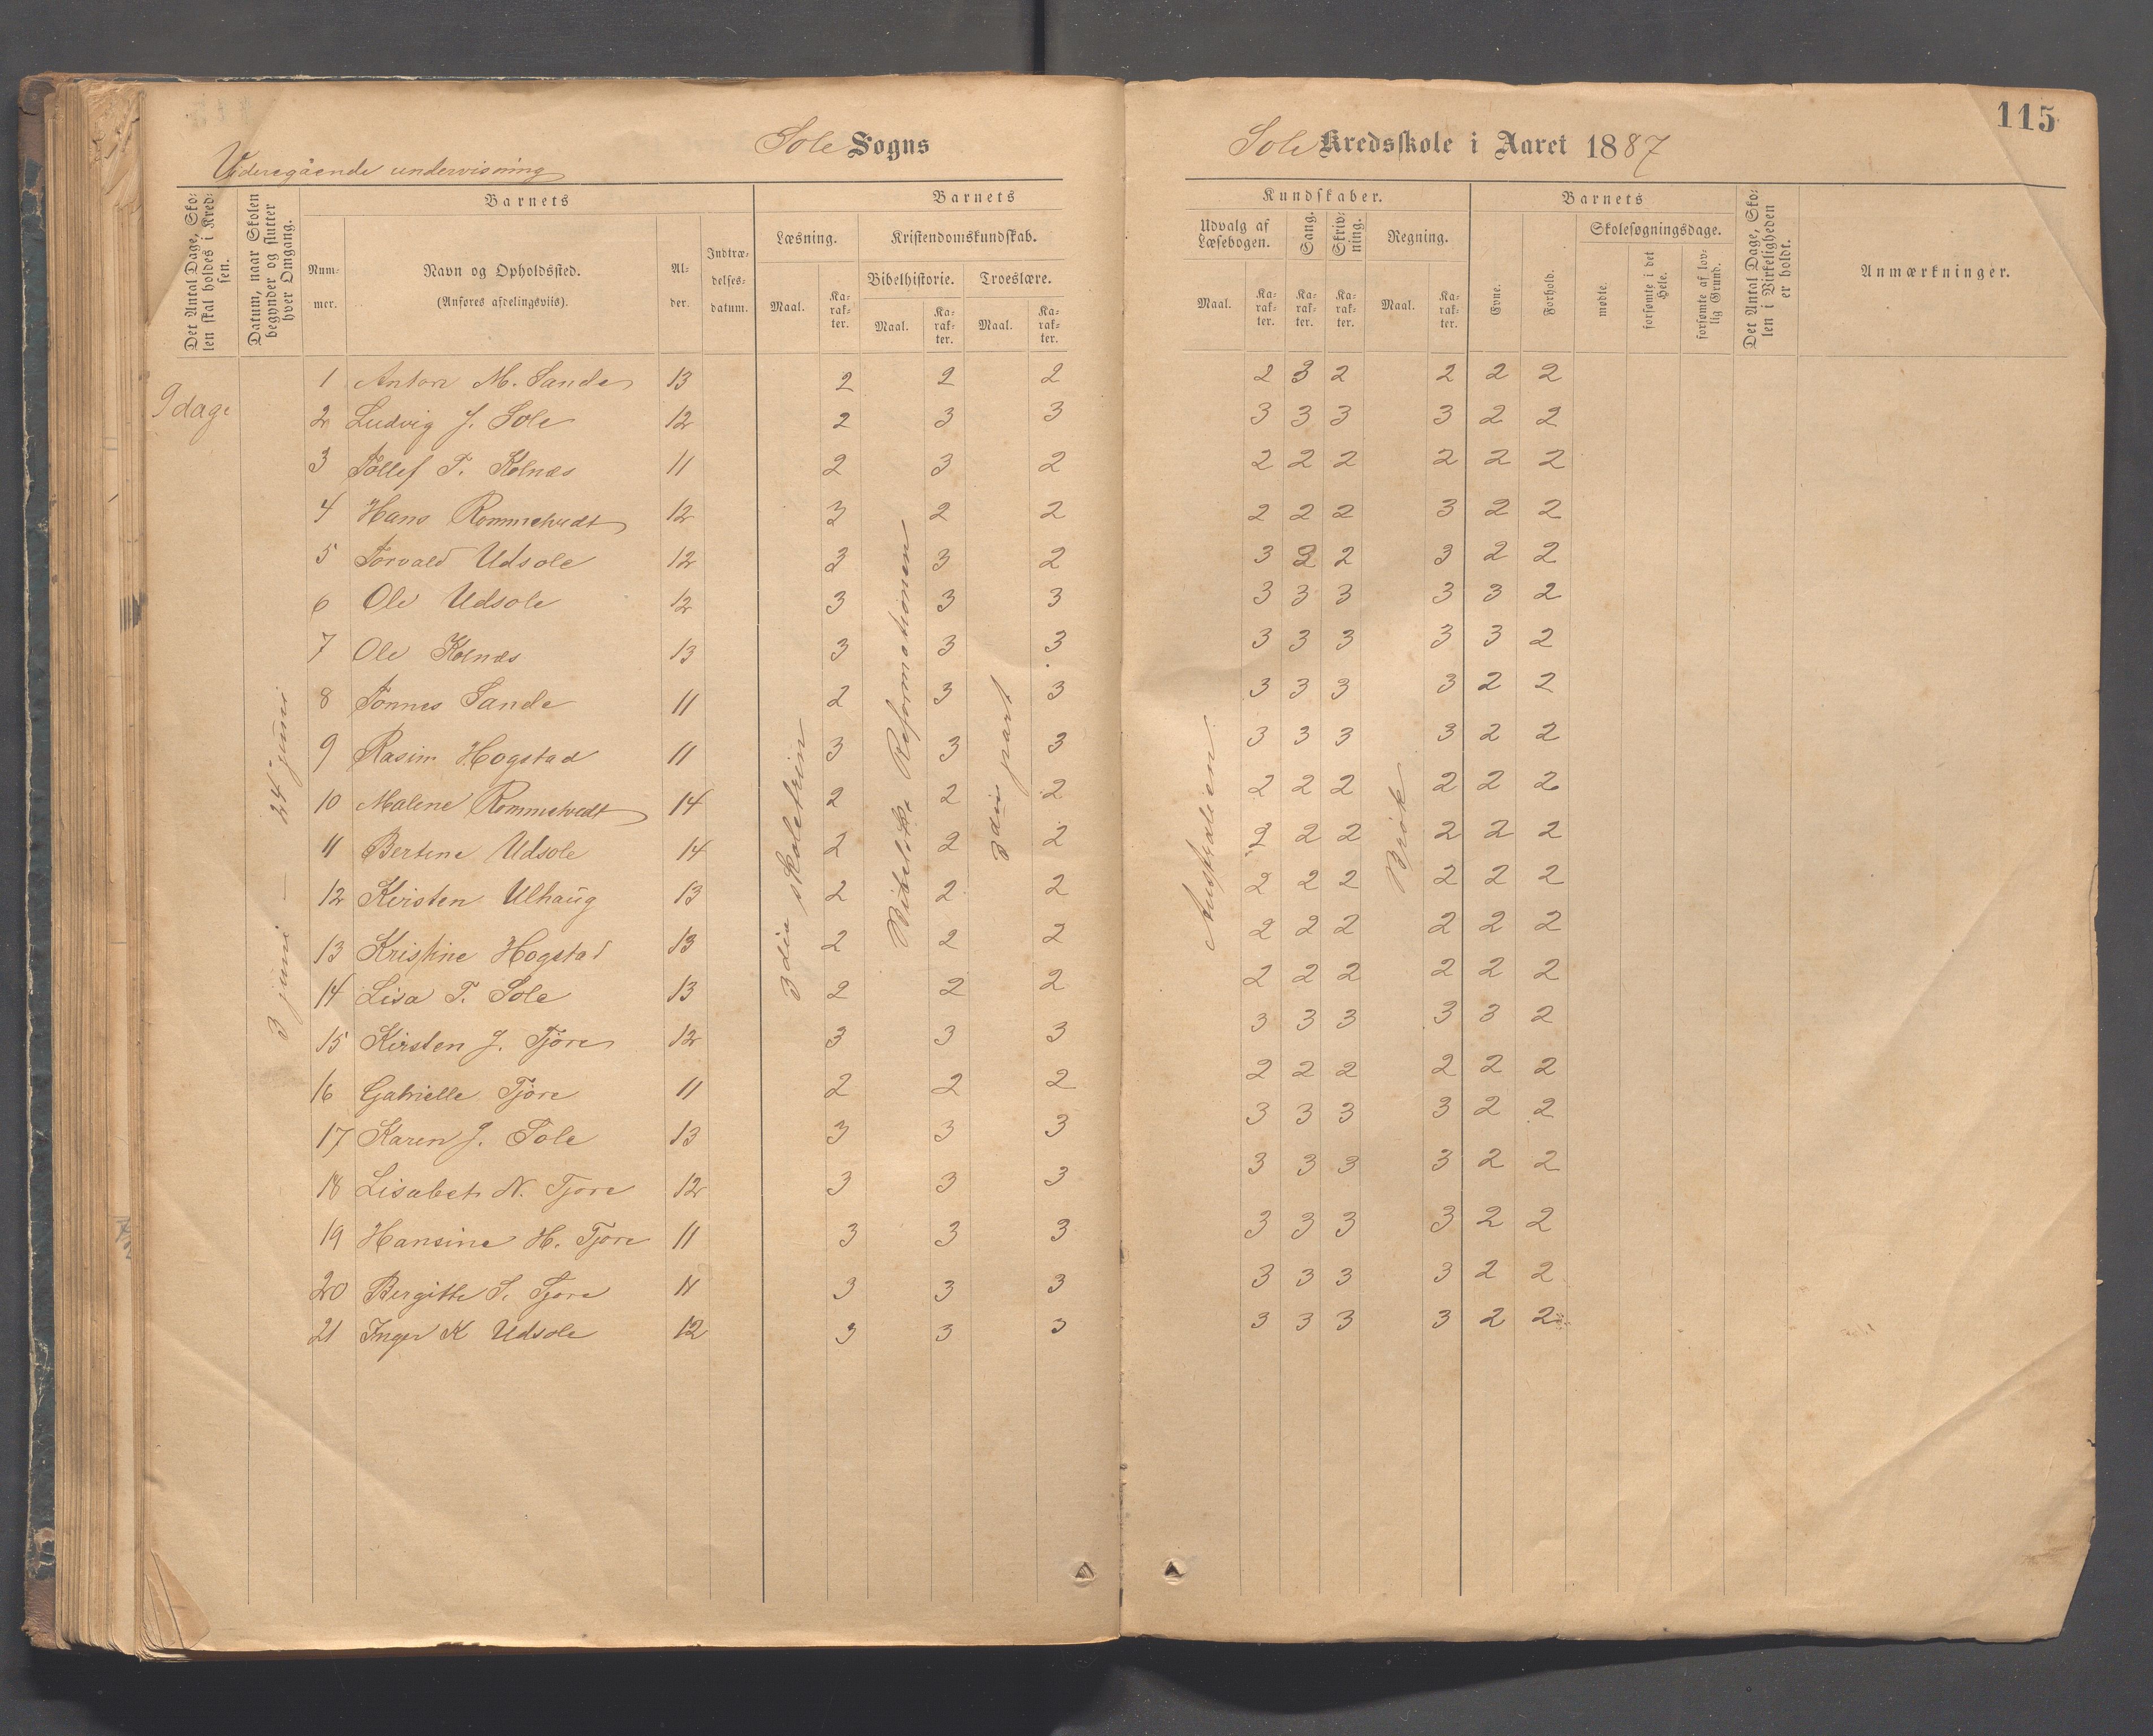 115
Sole Sogns
Sole Kredsskole i Aaret 1887
Videregående undervisning
Det Antal Dage, Skolen skal holdes i Kredsen.
Datum, naar Skolen begynder og slutter hver Omgang.
Barnets
Num-
mer.
Navn og Opholdssted.
(Anføres afdelingsviis).
Al-
der.
Indtræ-
delses-
datum.
Barnets
Læsning.
Maal.
Ka-
rak-
ter.
Kristendomskundskab.
Bibelhistorie.
Maal.
Ka-
rak-
ter.
Troeslære.
Maal.
Ka-
rak-
ter.
Kundskaber.
Udvalg af
Læsebogen.
Maal.
Ka-
rak-
ter.
Sang.
Ka-
rak-
ter.
Skriv-
ning.
Ka-
rak-
ter.
Regning.
Maal.
Ka-
rak-
ter.
Barnets
Evne.
Forhold.
Skolesøgningsdage.
mødte.
forsømte i det Hele.
forsømte af lovlig Grund.
Det Antal Dage, Skolen i Virkeligheden er holdt.
Anmærkninger.
9 dage
3 juni — 24 juni
3die skoletrin
Reformationen
3die part
Australien
Brøk
1 Anton M. Sande 13 2 2 2 2 3 2 2 2 2
2 Ludvig J. Sole 12 2 3 3 3 3 3 3 2 2
3 Tollef T. Kolnæs 11 2 3 2 2 2 2 2 2 2
4 Hans Rommetvedt 12 3 2 2 2 2 2 3 2 2
5 Torvald Udsole 12 3 3 2 3 2 2 3 2 2
6 Ole Udsole 12 3 3 3 3 3 3 3 3 2
7 Ole Kolnæs 13 3 3 3 3 3 3 3 3 2
8 Tønnes Sande 11 2 3 3 3 3 3 3 2 2
9 Rasim Hogstad 11 3 3 3 3 3 3 3 2 2
10 Malene Rommetvedt 14 2 2 2 2 2 2 2 2 2
11 Bertine Udsole 14 2 2 2 2 2 2 2 2 2
12 Kirsten Ulhaug 13 2 2 2 2 2 2 2 2 2
13 Kristine Hogstad 13 2 2 2 2 2 2 2 2 2
14 Lisa T. Sole 13 2 2 2 2 2 2 2 2 2
15 Kirsten J. Tjøre 12 3 3 3 3 3 3 3 3 2
16 Gabrielle Tjøre 11 2 2 2 2 2 2 2 2 2
17 Karen J. Sole 13 3 3 3 3 3 3 3 2 2
18 Lisabet N. Tjore 12 3 3 3 3 3 3 3 2 2
19 Hansine H. Tjore 11 3 3 3 3 3 3 3 2 2
20 Bergitte S. Tjore 11 3 3 3 3 3 3 3 2 2
21 Inger K Udsole 12 3 3 3 3 3 3 3 2 2